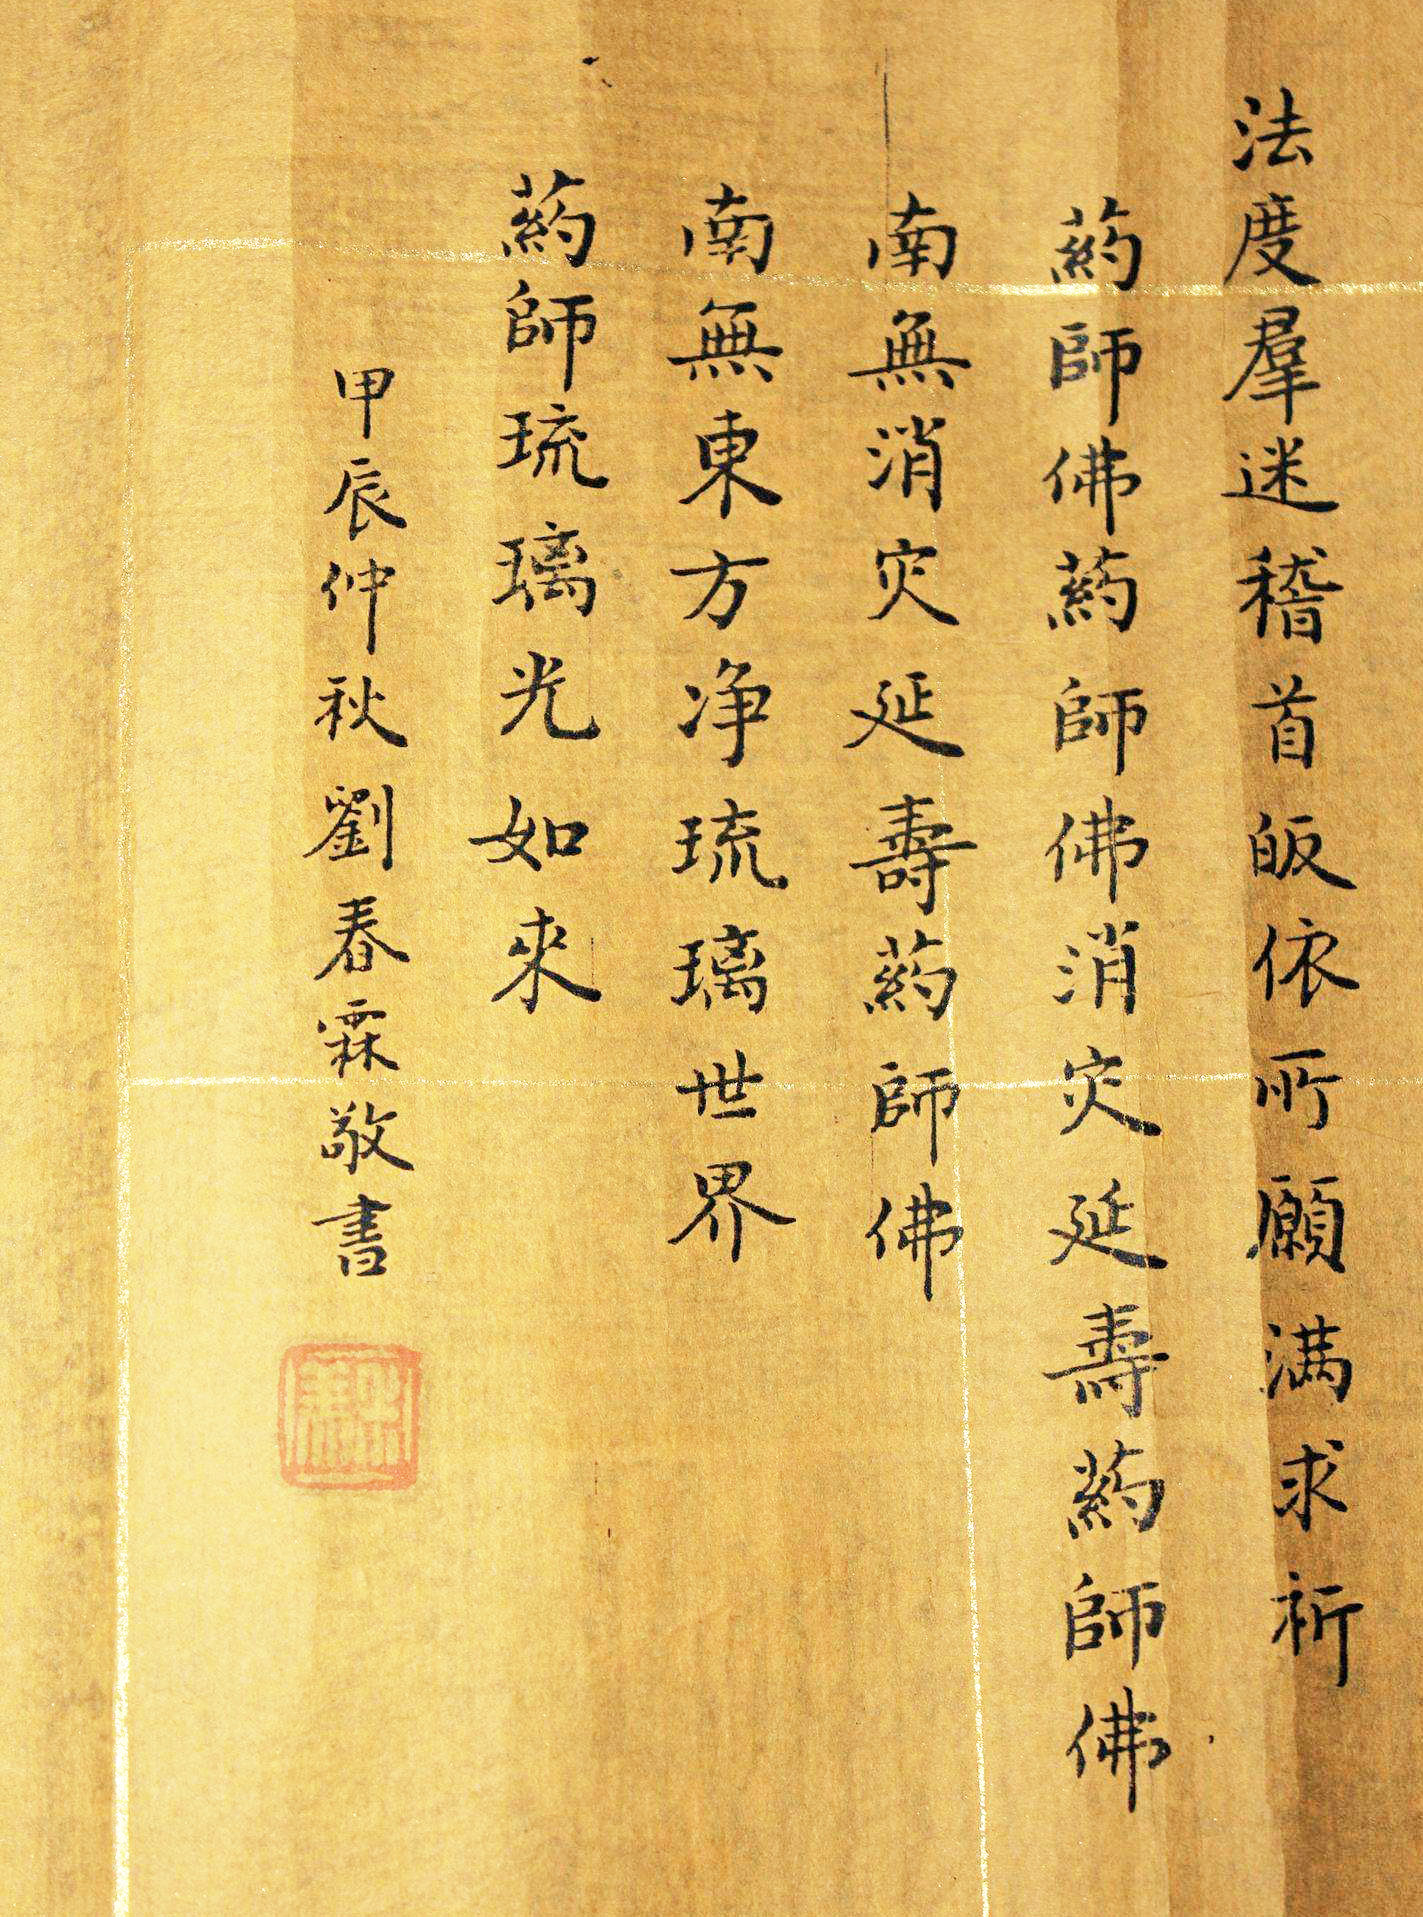 法度羣迷稽首皈依所願满求祈
葯師佛葯師佛消灾延壽葯師佛
南無消灾延壽葯師佛
南無東方净琉璃世界
葯師琉璃光如來
甲辰仲秋劉春霖敬書